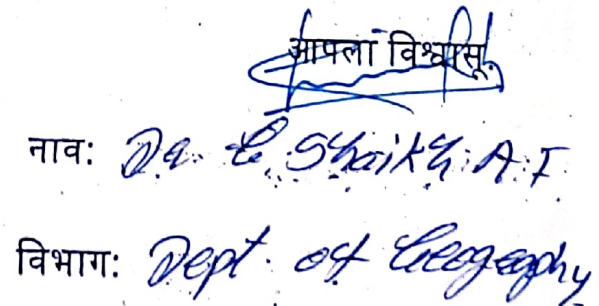 आपला विश्वासू.
नाव: Dr. Shaikh A.F.
विभाग: Dept. of Geography